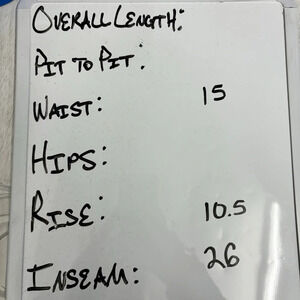 Overall Length:
Pit to Pit:
Waist: 15
Hips:
Rise: 10.5
Inseam: 26